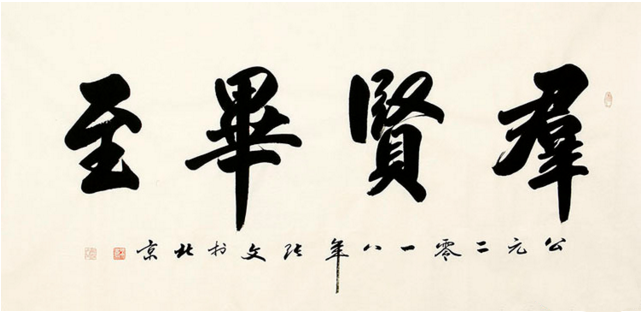 羣賢畢至
公元二零一八年張文於北京